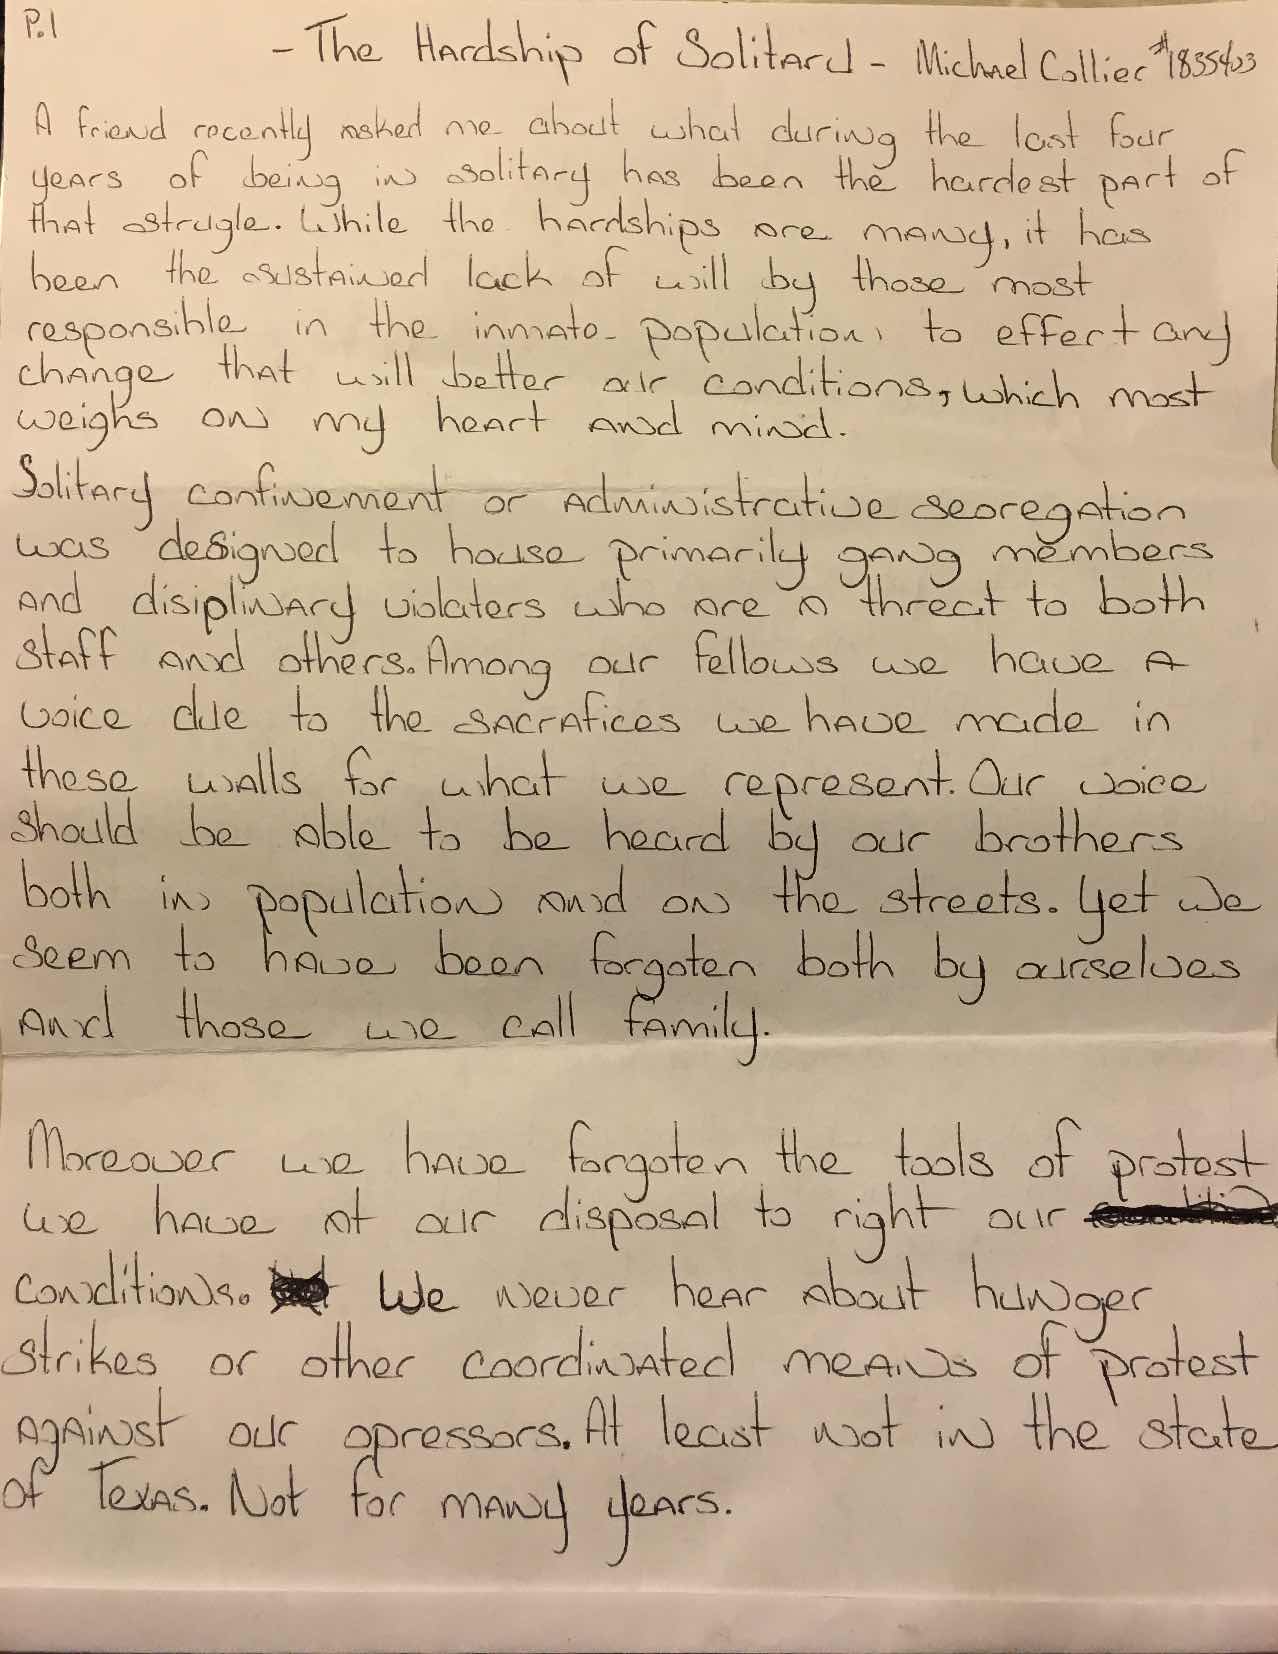 P.1
- The Hardship of Solitard - Michael Collier #1835403
A friend recently asked me about what during the last four
years of being in solitary has been the hardest part of
that strugle. While the hardships are many, it has
been the sustained lack of will by those most
responsible in the inmate population, to effect any
change that will better our conditions, which most
weighs on my heart and mind.
Solitary confinement or administrative segregation
was designed to house primarily gang members
and disiplinary violaters who are a threat to both
staff and others. Among our fellows we have a
voice due to the sacrafices we have made in
these walls for what we represent. Our voice
should be able to be heard by our brothers
both in population and on the streets. Yet we
seem to have been forgoten both by ourselves
and those we call family.
Moreover we have forgoten the tools of protest
we have at our disposal to right our
conditions. We never hear about hunger
strikes or other coordinated means of protest
against our opressors. At least not in the state
of Texas. Not for many years.